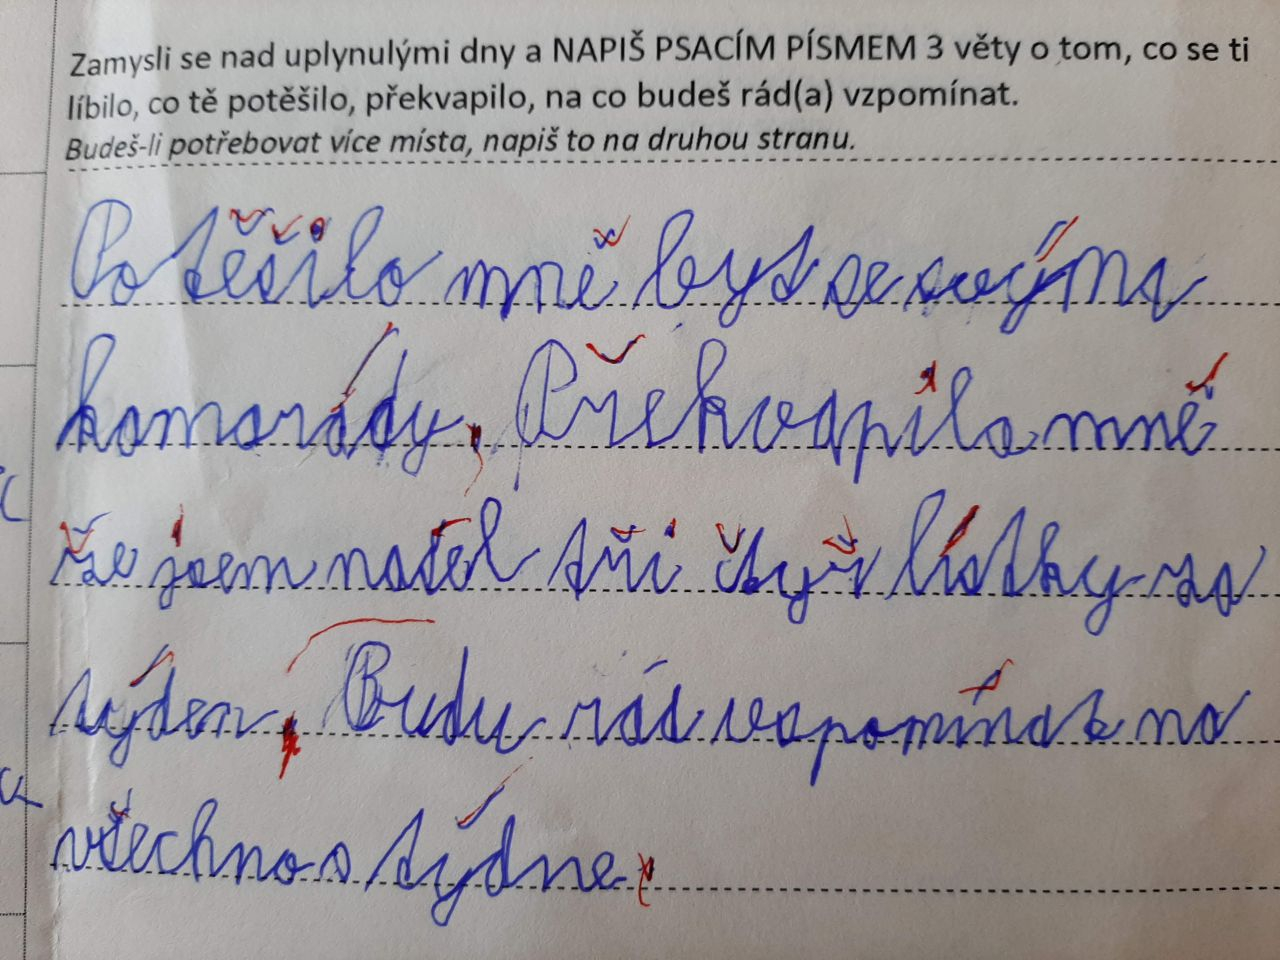 Zamysli se nad uplynulými dny a NAPIŠ PSACÍM PÍSMEM 3 věty o tom, co se ti
líbilo, co tě potěšilo, překvapilo, na co budeš rád(a) vzpomínat.
Budeš-li potřebovat více místa, napiš to na druhou stranu.
Potěšilo mně byt se svýma
komarády. Překvapilo mně
že jsem našel tři čtyř lístky za
týden. Budu rád vzpomínat na
všechno s týdne.